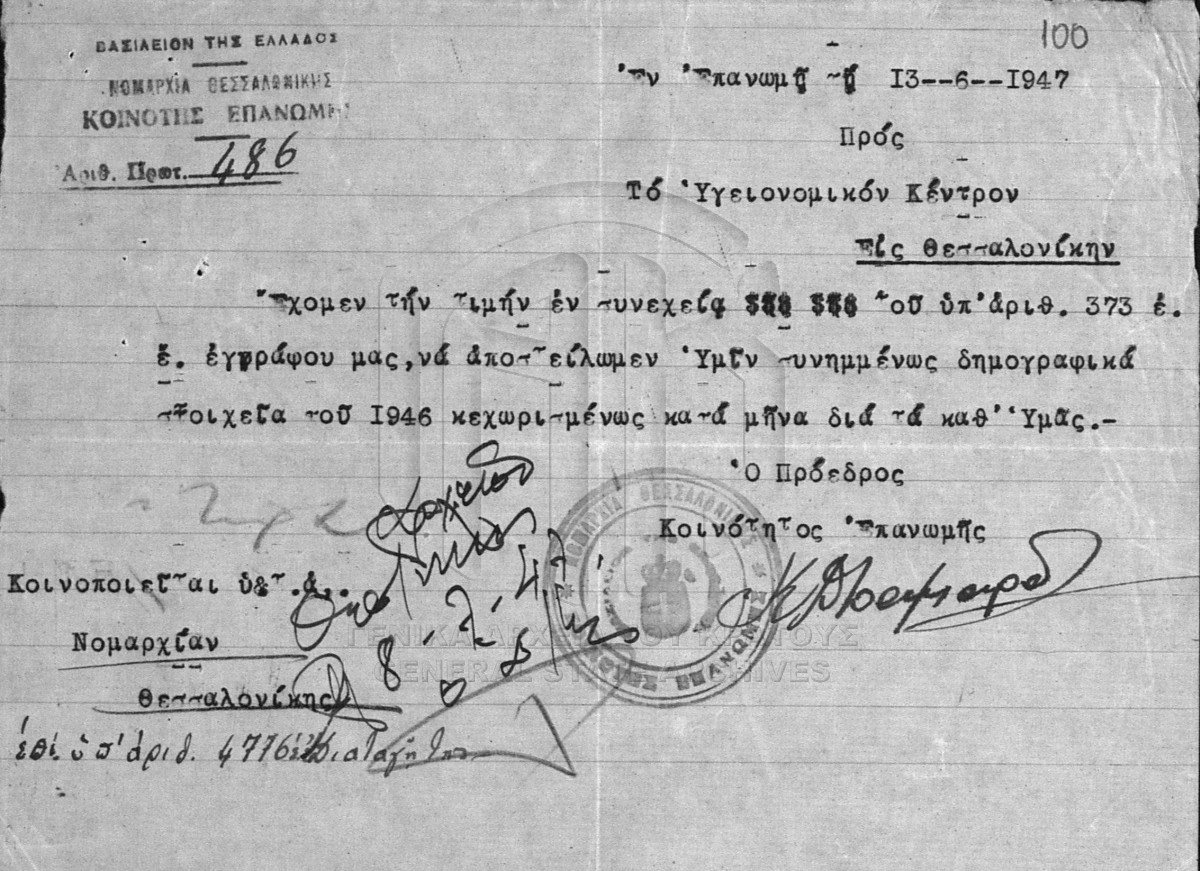 100
ΒΑΣΙΛΕΙΟΝ ΤΗΣ ΕΛΛΑΔΟΣ
ΝΟΜΑΡΧΙΑ ΘΕΣΣΑΛΟΝΙΚΗΣ
ΚΟΙΝΟΤΗΣ ΕΠΑΝΩΜΗΣ
Ἀριθ. Πρωτ. 486
Ἐν Ἐπανωμῇ τῇ 13--6--1947
Πρός
Τό Ὑγειονομικόν Κέντρον
Εἰς Θεσσαλονίκην
Ἔχομεν τήν τιμήν ἐν συνεχείᾳ τοῦ ὑπ' ἀριθ. 373 ἐ.
ἔ. ἐγγράφου μας, νά ἀποστείλωμεν Ὑμῖν συνημμένως δημογραφικά
στοιχεῖα τοῦ 1946 κεχωρισμένως κατά μῆνα διά τά καθ' Ὑμᾶς.-
Ὁ Πρόεδρος
Κοινότητος Ἐπανωμῆς
Κοινοποιεῖται
Νομαρχίαν
Θεσσαλονίκης
ὑπ' ἀριθ. 4776
ΝΟΜΑΡΧΙΑ ΘΕΣΣΑΛΟΝΙΚΗΣ
ΕΠΑΝΩΜΗΣ
ΓΕΝΙΚΑ ΑΡΧΕΙΑ ΤΟΥ ΚΡΑΤΟΥΣ
GENERAL STATE ARCHIVES